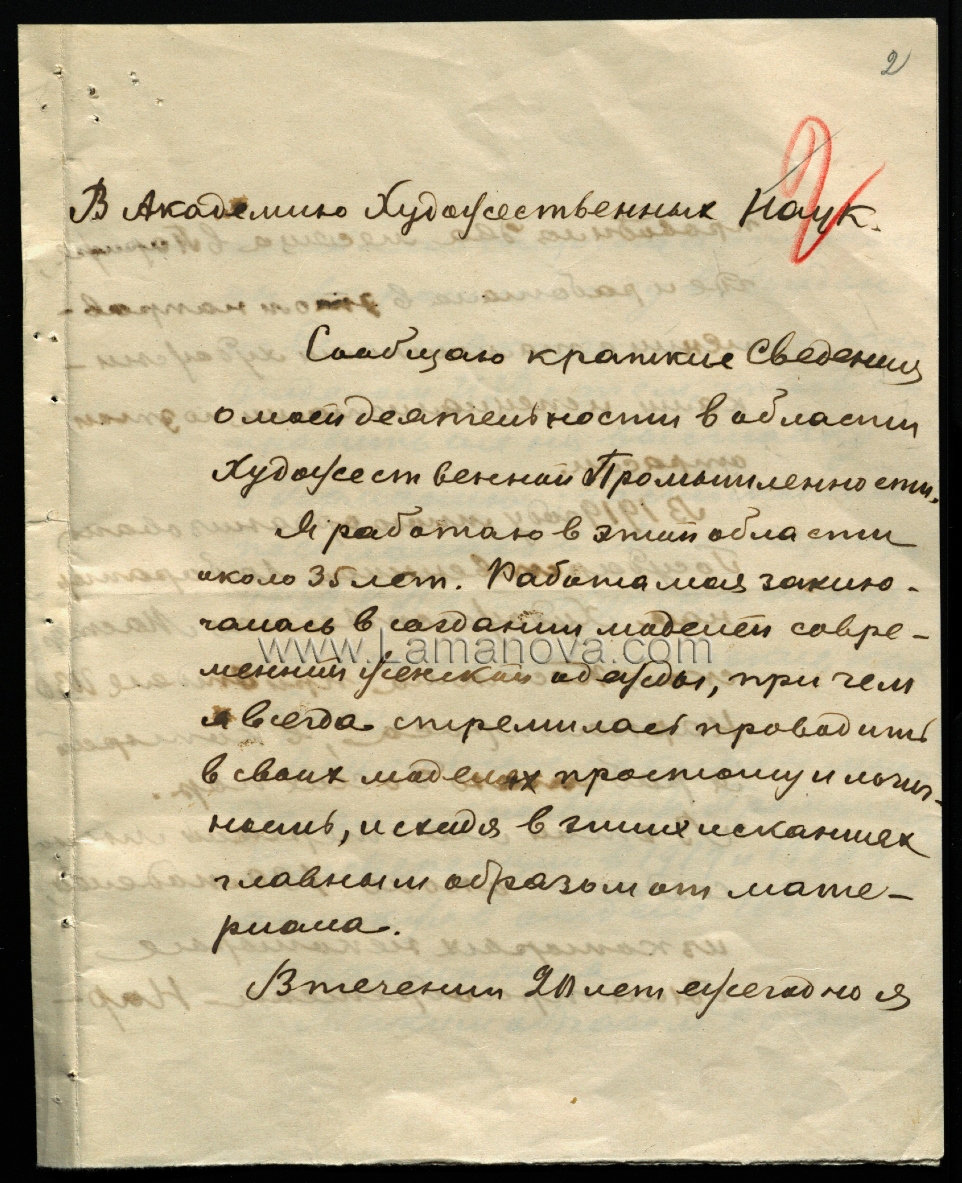 2
2
В Академию Художественных Наук.
Сообщаю краткие сведения
о моей деятельности в области
Художественной Промышленности.
Я работаю в этой области
около 35 лет. Работа моя заклю-
чалась в создании моделей совре-
менной женской одежды, при чем
я всегда стремилась проводить
www.Lamanova.com
в своих моделях простоту и логич-
ность, исходя в этих исканиях
главным образом от мате-
риала.
В течении 20 лет ежегодно я